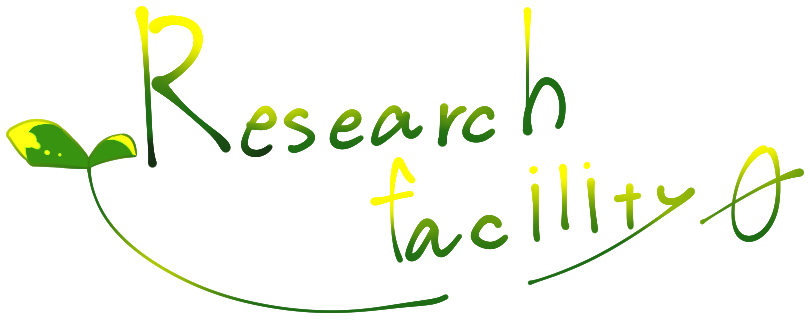 Research
facility 0